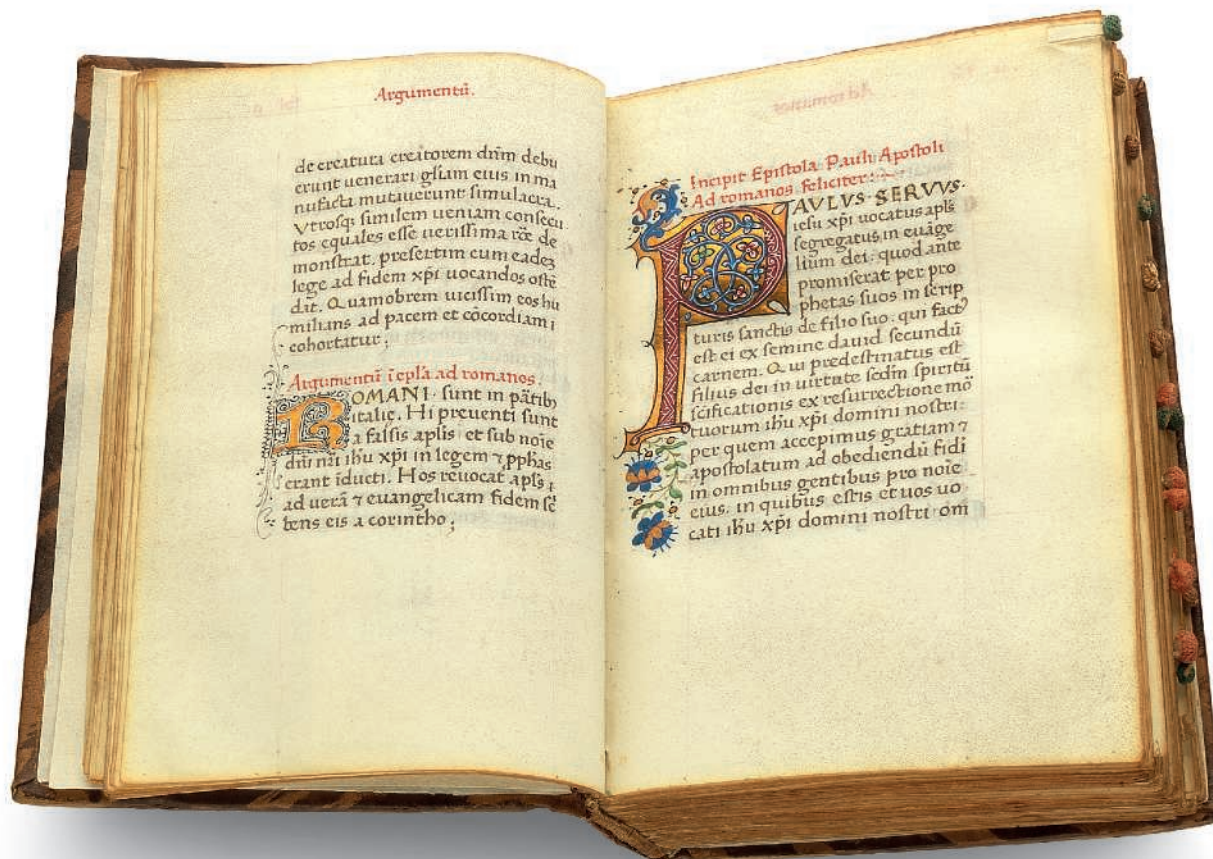 Argumentū.
de creatura creatorem dn̄m debu
erunt venerari gl̄iam eius in ma
nufacta mutaverunt simulacra.
Vtrosqꝫ similem veniam consecu
tos equales esse verissima rōe de
monstrat. presertim cum eadeꝫ
lege ad fidem xp̄i vocandos ostē
dit. Quamobrem vicissim eos hu
milians ad pacem et cōcordiam
cohortatur;
Argumentū ī ep̄la ad romanos.
ROMANI sunt in ꝑtibꝫ
italię. Hi preventi sunt
a falsis ap̄lis et sub noīe
dn̄i nr̄i ih̄u xp̄i in legem ⁊ ꝓph̄as
erant īducti. Hos revocat ap̄l̄s
ad verā ⁊ evangelicam fidem sc̄
bens eis a corintho;
Incipit Epistola Pauli Apostoli
Ad romanos feliciter:
PAULUS SERVUS
iesu xp̄i vocatus ap̄l̄s
segregatus in evāge
lium dei: quod ante
promiserat per pro
phetas suos in scrip
turis sanctis de filio suo. qui factꝰ
est ei ex semine david secundū
carnem. Qui predestinatus est
filius dei in virtute scd̄m spiritū
sc̄ificationis ex resurrectione mō
tuorum ih̄u xp̄i domini nostri:
per quem accepimus gratiam ⁊
apostolatum ad obediendū fidi
in omnibus gentibus pro noīe
eius. in quibus estis et vos vo
cati ih̄u xp̄i domini nostri om